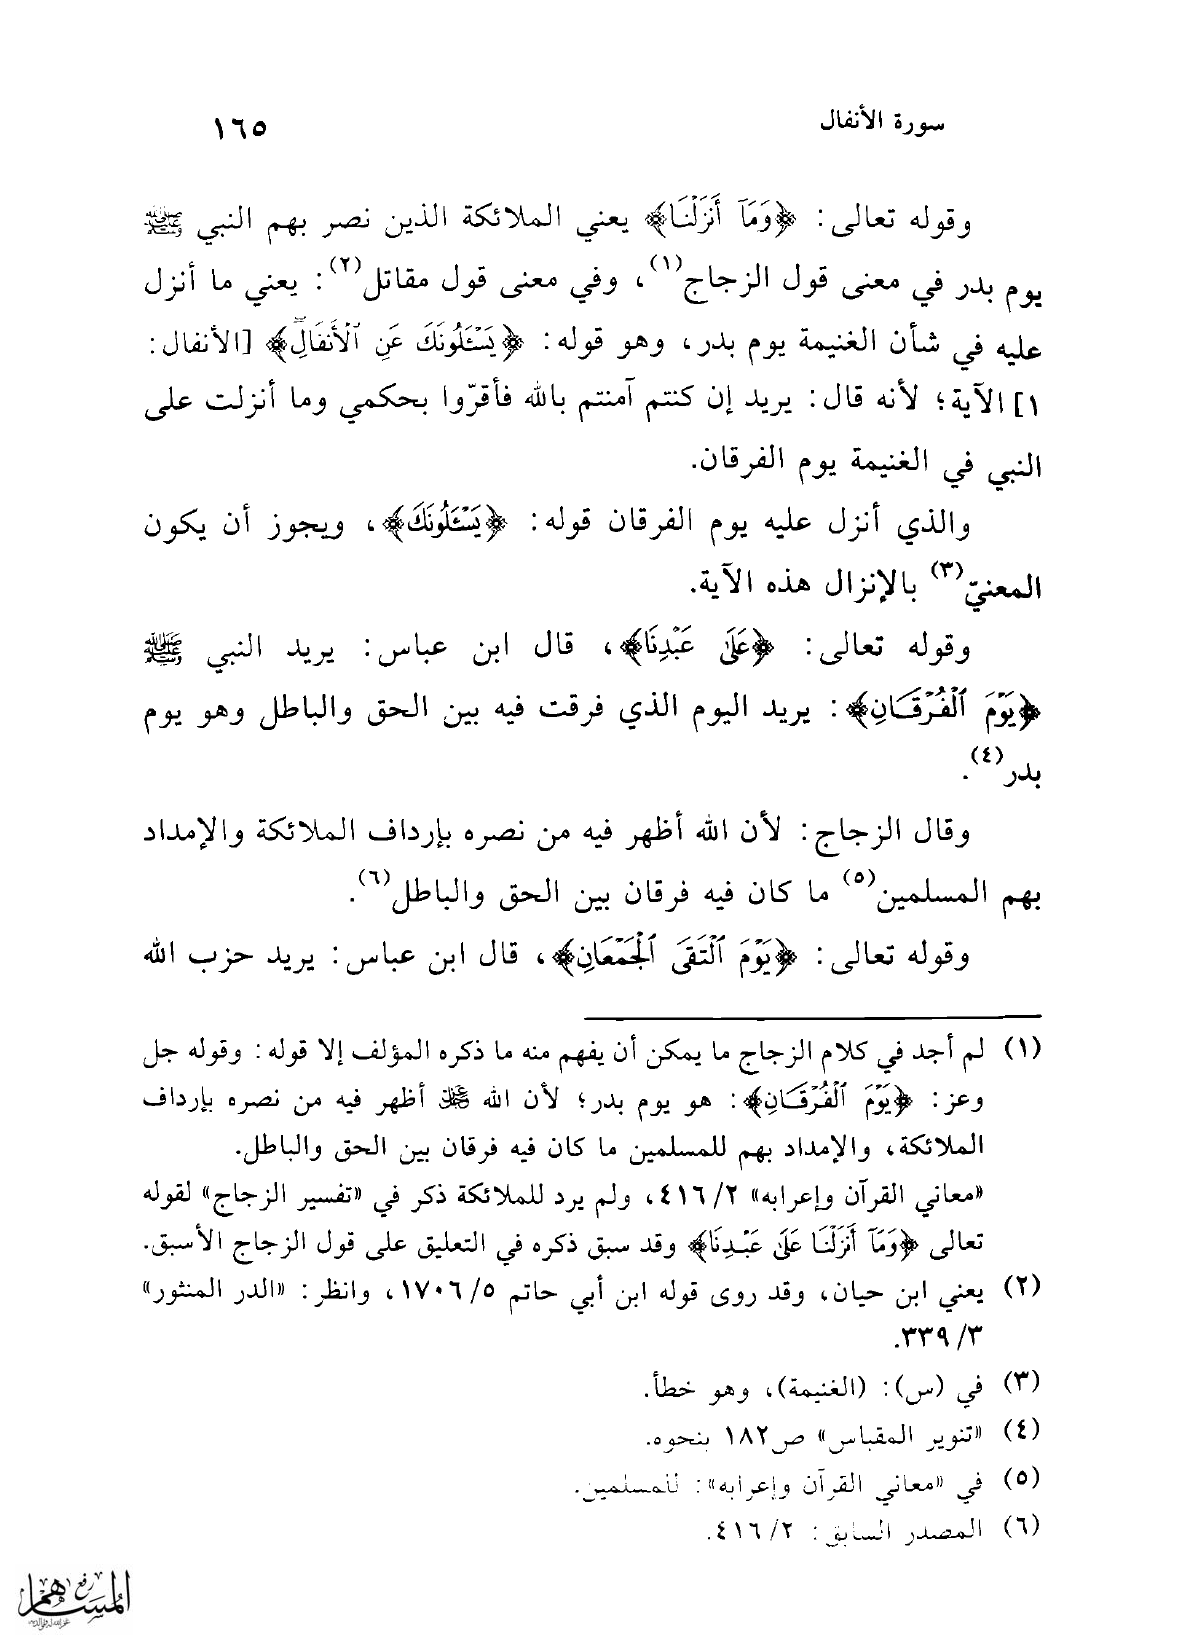 سورة الأنفال ١٦٥
وقوله تعالى: ﴿وَمَآ أَنزَلْنَا﴾ يعني الملائكة الذين نصر بهم النبي ﷺ
يوم بدر في معنى قول الزجاج(١)، وفي معنى قول مقاتل(٢): يعني ما أنزل
عليه في شأن الغنيمة يوم بدر، وهو قوله: ﴿يَسْـَٔلُونَكَ عَنِ ٱلْأَنفَالِۖ﴾ [الأنفال:
١] الآية؛ لأنه قال: يريد إن كنتم آمنتم بالله فأقرّوا بحكمي وما أنزلت على
النبي في الغنيمة يوم الفرقان.
والذي أنزل عليه يوم الفرقان قوله: ﴿يَسْـَٔلُونَكَ﴾، ويجوز أن يكون
المعنيّ(٣) بالإنزال هذه الآية.
وقوله تعالى: ﴿عَلَىٰ عَبْدِنَا﴾، قال ابن عباس: يريد النبي ﷺ
﴿يَوْمَ ٱلْفُرْقَـانِ﴾: يريد اليوم الذي فرقت فيه بين الحق والباطل وهو يوم
بدر(٤).
وقال الزجاج: لأن الله أظهر فيه من نصره بإرداف الملائكة والإمداد
بهم المسلمين(٥) ما كان فيه فرقان بين الحق والباطل(٦).
وقوله تعالى: ﴿يَوْمَ ٱلْتَقَى ٱلْجَمْعَانِ﴾، قال ابن عباس: يريد حزب الله
(١) لم أجد في كلام الزجاج ما يمكن أن يفهم منه ما ذكره المؤلف إلا قوله: وقوله جل
وعز: ﴿يَوْمَ ٱلْفُرْقَـانِ﴾: هو يوم بدر؛ لأن الله ﷻ أظهر فيه من نصره بإرداف
الملائكة، والإمداد بهم للمسلمين ما كان فيه فرقان بين الحق والباطل.
«معاني القرآن وإعرابه» ٢/ ٤١٦، ولم يرد للملائكة ذكر في «تفسير الزجاج» لقوله
تعالى ﴿وَمَآ أَنزَلْنَا عَلَىٰ عَبْدِنَا﴾ وقد سبق ذكره في التعليق على قول الزجاج الأسبق.
(٢) يعني ابن حيان، وقد روى قوله ابن أبي حاتم ٥/ ١٧٠٦، وانظر: «الدر المنثور»
٣/ ٣٣٩.
(٣) في (س): (الغنيمة)، وهو خطأ.
(٤) «تنوير المقباس» ص١٨٢ بنحوه.
(٥) في «معاني القرآن وإعرابه»: للمسلمين.
(٦) المصدر السابق: ٢/ ٤١٦.